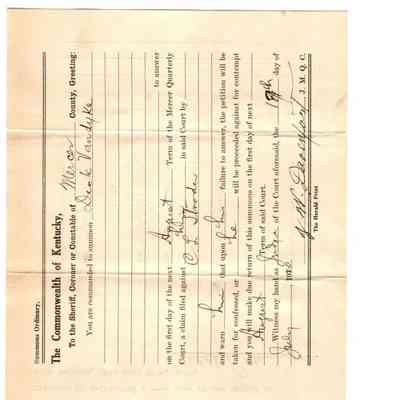 Summons Ordinary.
The Commonwealth of Kentucky,
To the Sheriff, Coroner or Constable of Mercer County, Greeting:
You are commanded to summon Deak Vandyke
to answer
on the first day of the next August Term of the Mercer Quarterly
Court, a claim filed against him in said Court by
C L
and warn him that upon his failure to answer, the petition will be
taken for confessed, or he will be proceeded against for contempt
and you will make due return of this summons on the first day of next
August Term of said Court.
Witness my hand as Judge of the Court aforesaid, the day of
July
J. W. J. M. Q. C.
The Herald Print